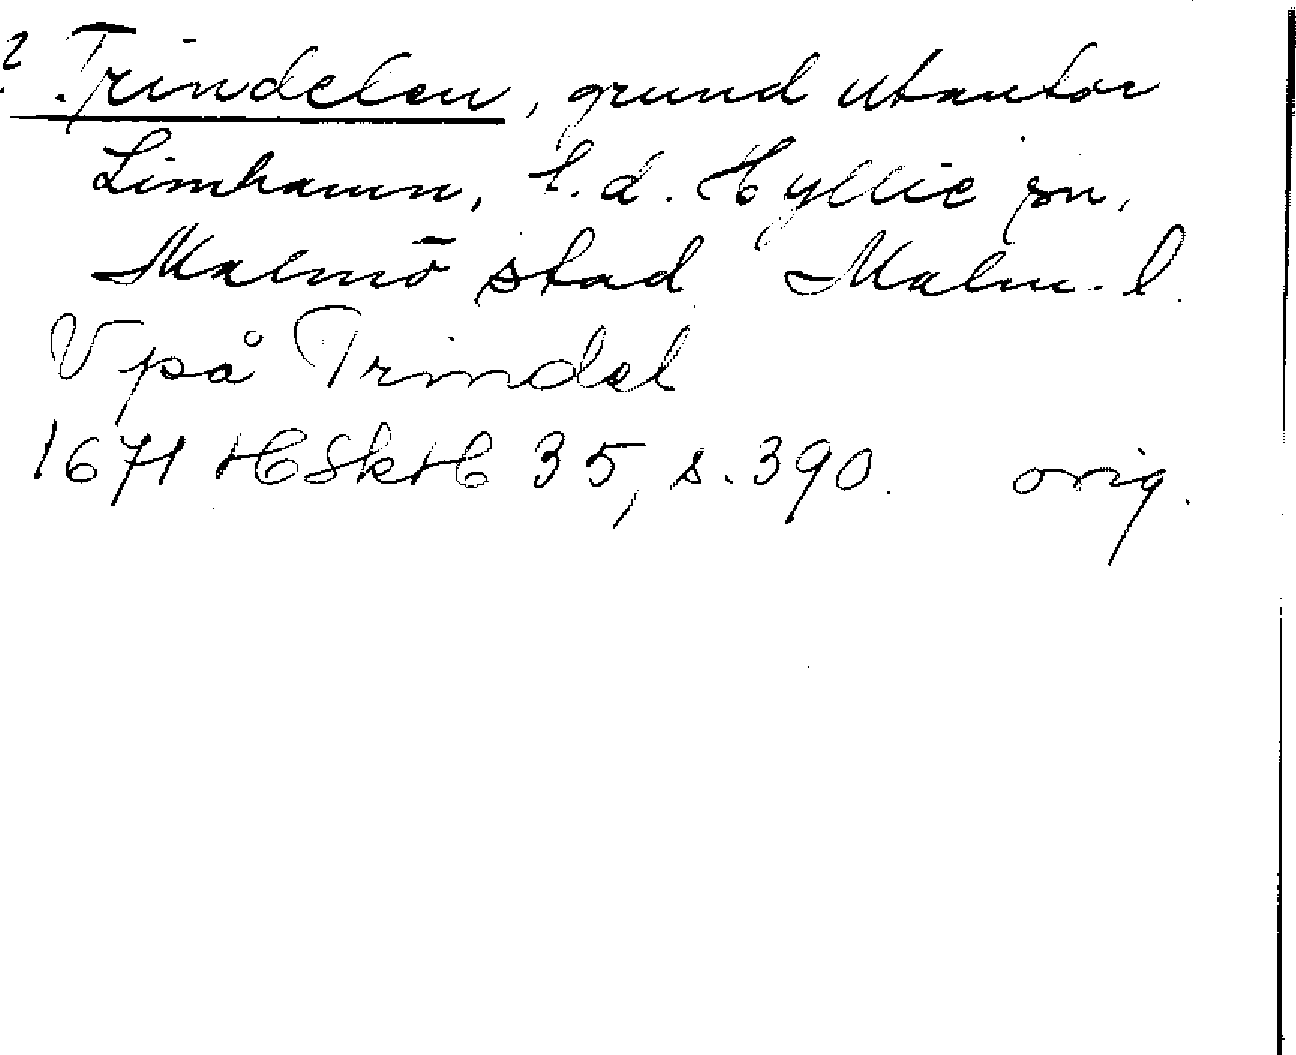 ? Trindelen, grund utanför
Limhamn, f.d. Hyllie sn,
Malmö stad Malm. l.
V på Trindel
1671 HSkH 35, s. 390. orig.